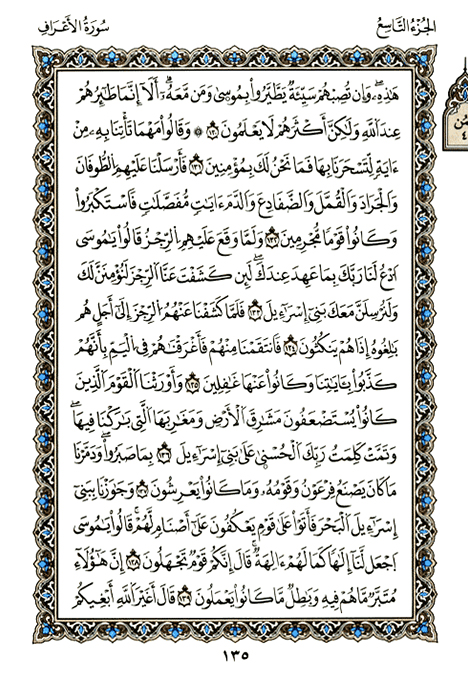 الجُزْءُ التَّاسِعُ
سُورَةُ الأَعْرَافِ
هَٰذِهِۦ وَإِن تُصِبْهُمْ سَيِّئَةٌ يَطَّيَّرُواْ بِمُوسَىٰ وَمَن مَّعَهُۥٓ أَلَآ إِنَّمَا طَٰٓئِرُهُمْ
عِندَ ٱللَّهِ وَلَٰكِنَّ أَكْثَرَهُمْ لَا يَعْلَمُونَ ١٣٠ ۞ وَقَالُواْ مَهْمَا تَأْتِنَا بِهِۦ مِنْ
ءَايَةٍ لِّتَسْحَرَنَا بِهَا فَمَا نَحْنُ لَكَ بِمُؤْمِنِينَ ١٣١ فَأَرْسَلْنَا عَلَيْهِمِ ٱلطُّوفَانَ
وَٱلْجَرَادَ وَٱلْقُمَّلَ وَٱلضَّفَادِعَ وَٱلدَّمَ ءَايَٰتٍ مُّفَصَّلَٰتٍ فَٱسْتَكْبَرُواْ
وَكَانُواْ قَوْمًا مُّجْرِمِينَ ١٣٢ وَلَمَّا وَقَعَ عَلَيْهِمِ ٱلرِّجْزُ قَالُواْ يَٰمُوسَى
ٱدْعُ لَنَا رَبَّكَ بِمَا عَهِدَ عِندَكَ لَئِن كَشَفْتَ عَنَّا ٱلرِّجْزَ لَنُؤْمِنَنَّ لَكَ
وَلَنُرْسِلَنَّ مَعَكَ بَنِيٓ إِسْرَٰٓءِيلَ ١٣٣ فَلَمَّا كَشَفْنَا عَنْهُمُ ٱلرِّجْزَ إِلَىٰٓ أَجَلٍ هُم
بَٰلِغُوهُ إِذَا هُمْ يَنكُثُونَ ١٣٤ فَٱنتَقَمْنَا مِنْهُمْ فَأَغْرَقْنَٰهُمْ فِي ٱلْيَمِّ بِأَنَّهُمْ
كَذَّبُواْ بِـَٔايَٰتِنَا وَكَانُواْ عَنْهَا غَٰفِلِينَ ١٣٥ وَأَوْرَثْنَا ٱلْقَوْمَ ٱلَّذِينَ
كَانُواْ يُسْتَضْعَفُونَ مَشَٰرِقَ ٱلْأَرْضِ وَمَغَٰرِبَهَا ٱلَّتِي بَٰرَكْنَا فِيهَا
وَتَمَّتْ كَلِمَتُ رَبِّكَ ٱلْحُسْنَىٰ عَلَىٰ بَنِيٓ إِسْرَٰٓءِيلَ ١٣٦ بِمَا صَبَرُواْ وَدَمَّرْنَا
مَا كَانَ يَصْنَعُ فِرْعَوْنُ وَقَوْمُهُۥ وَمَا كَانُواْ يَعْرِشُونَ ١٣٧ وَجَٰوَزْنَا بِبَنِيٓ
إِسْرَٰٓءِيلَ ٱلْبَحْرَ فَأَتَوْاْ عَلَىٰ قَوْمٍ يَعْكُفُونَ عَلَىٰٓ أَصْنَامٍ لَّهُمْ قَالُواْ يَٰمُوسَى
ٱجْعَل لَّنَآ إِلَٰهًا كَمَا لَهُمْ ءَالِهَةٌ قَالَ إِنَّكُمْ قَوْمٌ تَجْهَلُونَ ١٣٨ إِنَّ هَٰٓؤُلَآءِ
مُتَبَّرٌ مَّا هُمْ فِيهِ وَبَٰطِلٌ مَّا كَانُواْ يَعْمَلُونَ ١٣٩ قَالَ أَغَيْرَ ٱللَّهِ أَبْغِيكُمْ
١٣٥